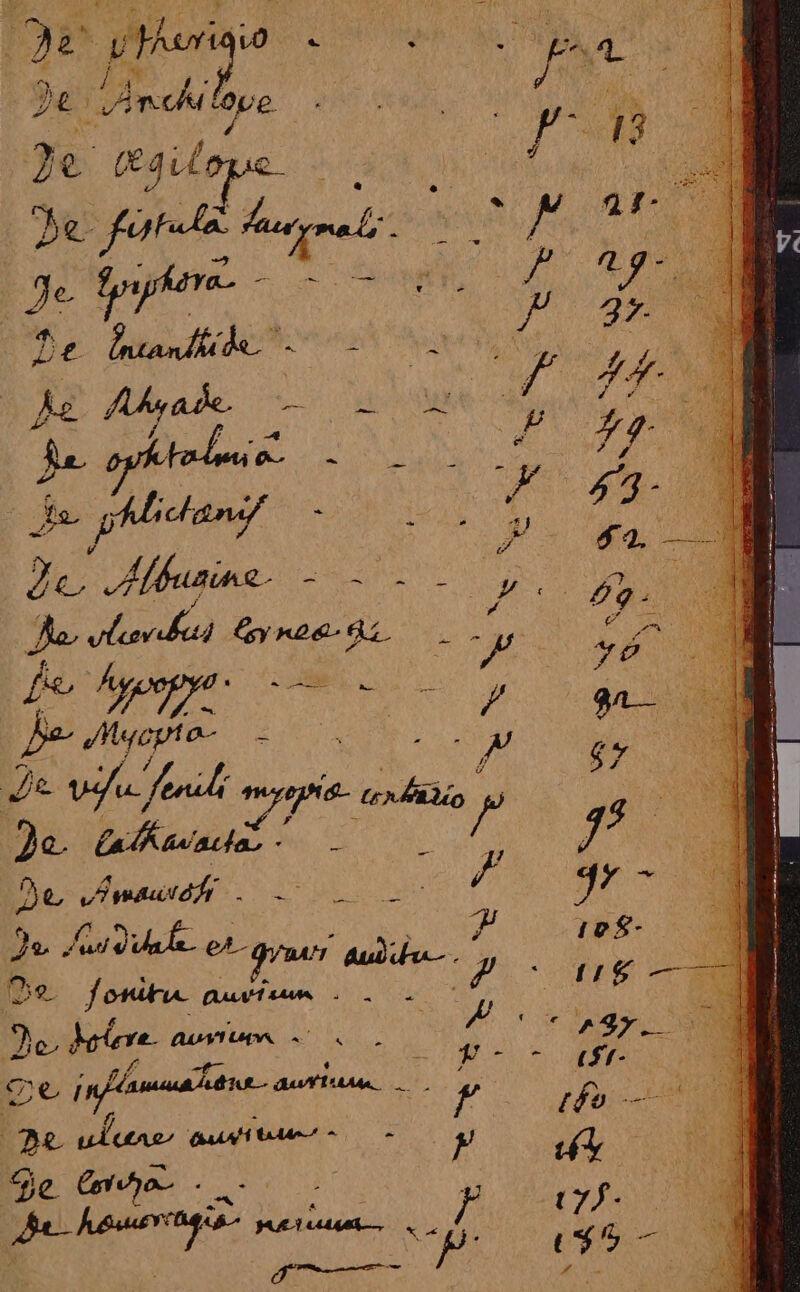 De pterigio . . . p. 2
De Anchilope . . . . p. 13
De Ægilope . . . p 21.
De fistula lacrymali . . . p 29.
De Epiphora - - - - p 37.
De Encanthide . - - p 44.
De Rhyade - - - p 49.
De ophtalmia - - - p 53.
De phlictanis - - - p 62.
De Albugine - - - - p. 69.
De ulceribus - - p 76
De hypopyo . - - - p
De Myopia - - - p 87
De visu senili myopiæ contrario p
De Catharacta . - - p
De Amaurosi . - - - p 108.
De surditate et gravi auditu . p . 118
De sonitu aurium . . - p
De dolore aurium - . . p - - 151.
De inflammatione aurium - . p 160
De ulcere aurium - - p
De Coryza . - - p 175.
De hemorragia narium - - p.